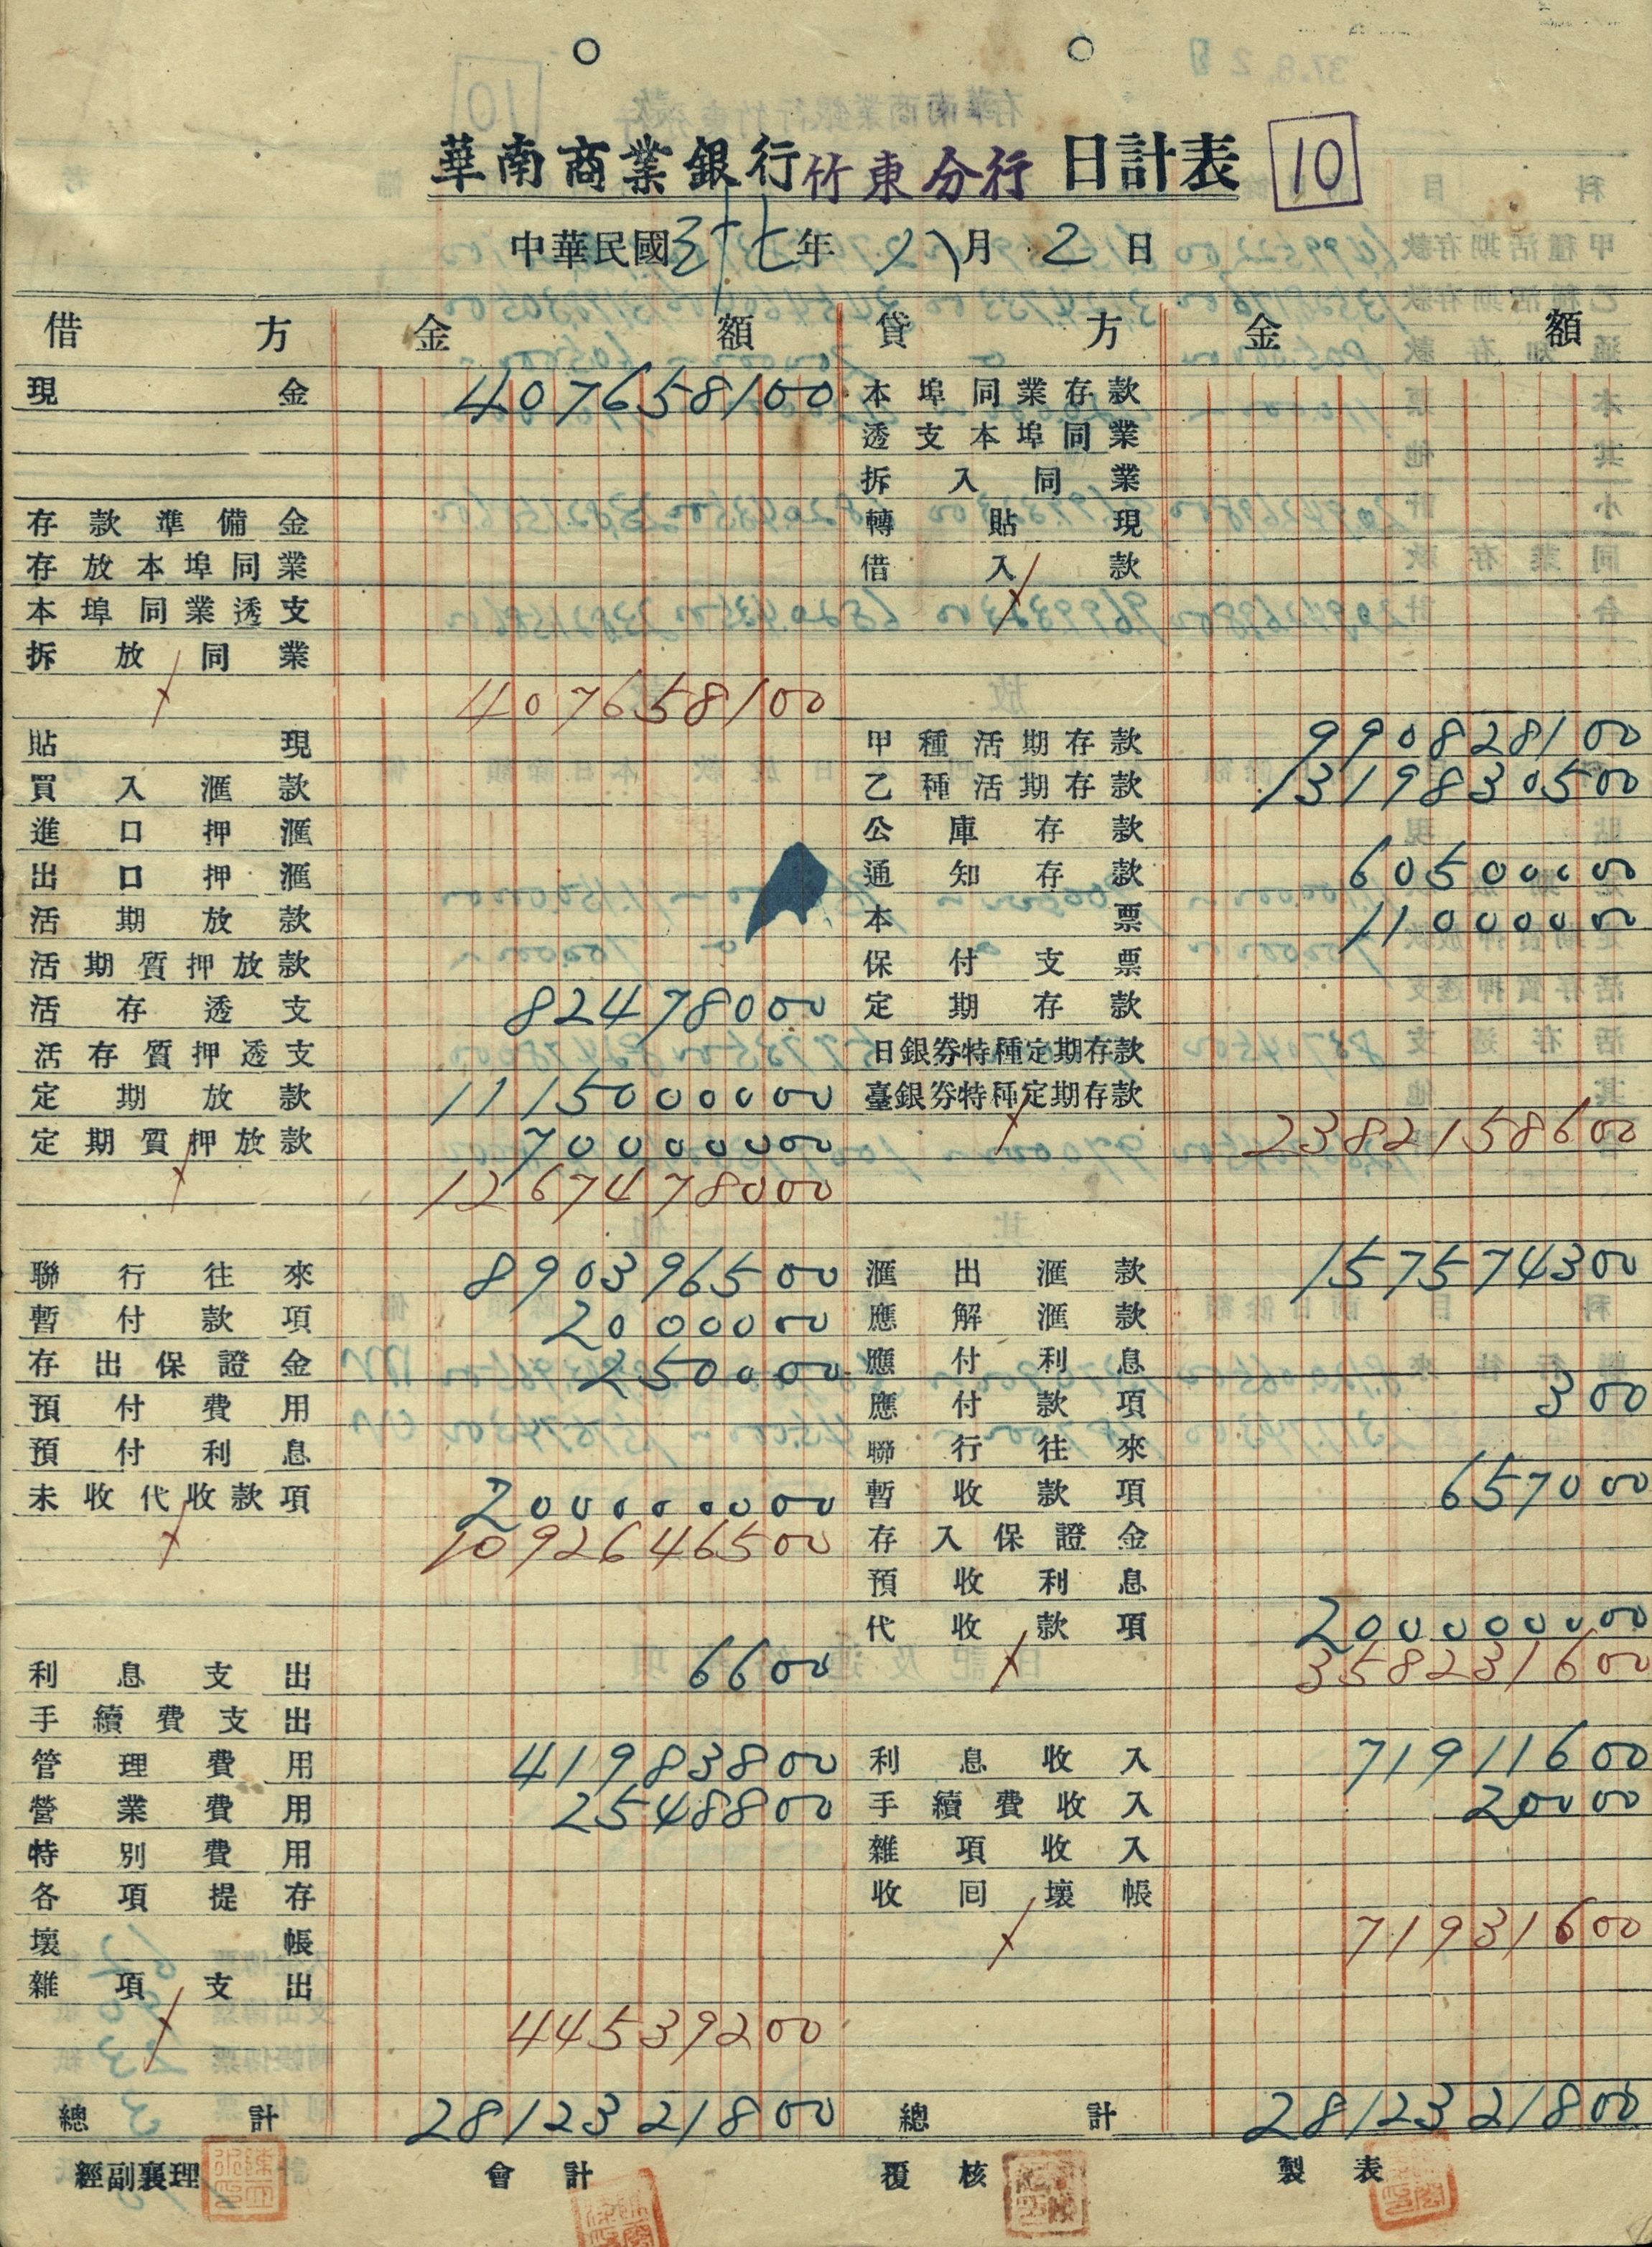 華南商業銀行竹東分行 日計表 10
中華民國三十七年 八月 2 日
借方 金額 貸方 金額
現金 407658100 本埠同業存款
透支本埠同業
拆入同業
存款準備金 轉貼現
存放本埠同業 借入款
本埠同業透支
拆放同業
407658100
貼現 甲種活期存款 990828100
買入滙款 乙種活期存款 1319830500
進口押滙 公庫存款
出口押滙 通知存款 60500000
活期放款 本票 11000000
活期質押放款 保付支票
活存透支 82478000 定期存款
活存質押透支 日銀券特種定期存款
定期放款 1115000000 臺銀券特種定期存款
定期質押放款 70000000 2382158600
1267478000
聯行往來 890396500 滙出滙款 157574300
暫付款項 2000000 應解滙款
存出保證金 250000 應付利息
預付費用 應付款項 300
預付利息 聯行往來
未收代收款項 200000000 暫收款項 657000
1092646500 存入保證金
預收利息
代收款項 200000000
利息支出 6600 358231600
手續費支出
管理費用 41983800 利息收入 71911600
營業費用 2548800 手續費收入 20000
特別費用 雜項收入
各項提存 收回壞帳
壞帳 71931600
雜項支出
44539200
總計 2812321800 總計 2812321800
經副襄理 會計 覆核 製表